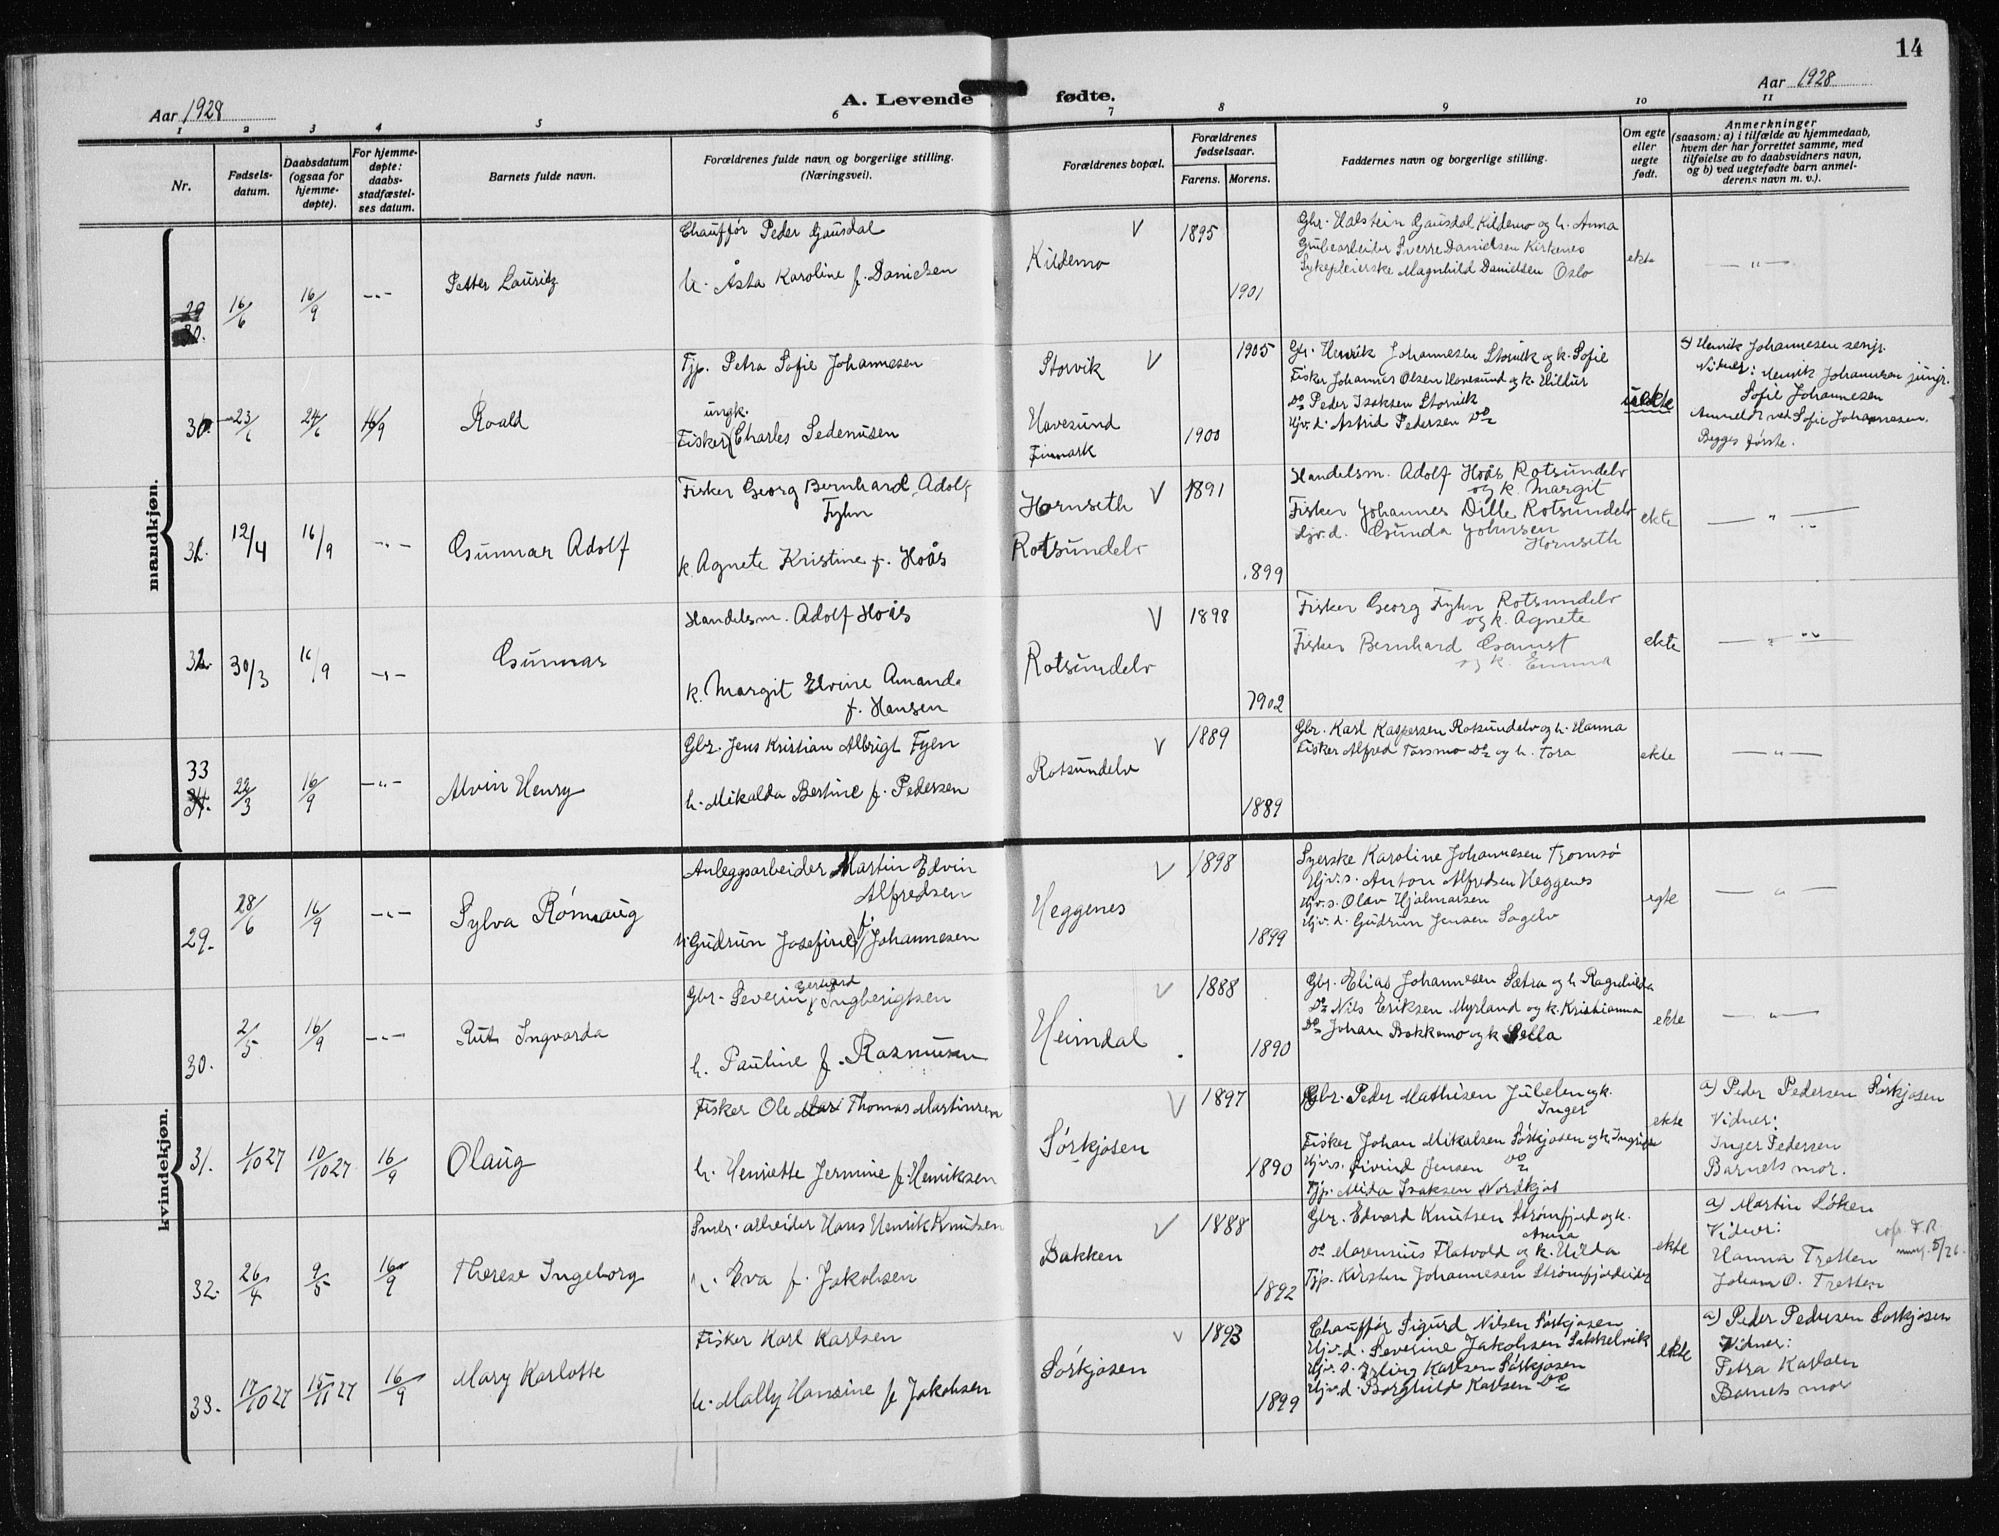 14
Aar 1928
A. Levende fødte.
Aar 1928
1 2 3 4 5 6 7 8 9 10 11
Nr.
Fødsels-
datum.
Daabsdatum
(ogsaa for
hjemme-
døpte).
For hjemme-
døpte:
daabs-
stadfæstel-
ses datum.
Barnets fulde navn.
Forældrenes fulde navn og borgerlige stilling.
(Næringsvei).
Forældrenes bopæl.
Forældrenes
fødselsaar.
Farens. Morens.
Faddernes navn og borgerlige stilling.
Om egte
eller
uegte
født.
Anmerkninger
(saasom: a) i tilfælde av hjemmedaab,
hvem der har forrettet samme, med
tilføielse av to daabsvidners navn,
og b) ved uegtefødte barn anmel-
derens navn m. v.).
mandkjøn.
29
30.
16/6
16/9
-"-
Petter Lauritz
Chauffør Peder Gausdal
h. Åsta Karoline f. Danielsen
Kildemo
V
1895
1901
Gbr. Halstein Gausdal Kildemo og h. Anna
Grubearbeider Sverre Danielsen Kirkenes
Sykepleierske Magnhild Danielsen Oslo
ekte
— " —
30.
23/6
24/6
16/9
Roald
Tjp. Petra Sofie Johannesen
ungk.
Fisker Charles Sedenusen
Storvik V
Havesund
Finmark
1905
1900
Gbr. Henrik Johannesen Storvik og k. Sofie
Fisker Johannes Olsen Havesund og k. Hildur
Do Peder Isaksen Storvik
Hjv. d. Astrid Pedersen Do
uekte
a) Henrik Johannesen senjr.
Vidner: Henrik Johannesen junjr.
Sofie Johannesen
Anmeldt ved Sofie Johannesen.
Begges første.
31.
12/4
16/9
-"-
Gunnar Adolf
Fisker Georg Bernhard Adolf
Fyhn
k. Agnete Kristine f. Hoås
Hornseth V
Rotsundelv
1891
1899
Handelsm. Adolf Hoås Rotsundelv
og k. Margit
Fisker Johannes Dille Rotsundelv
Hjv. d. Gunda Johnsen
Hornseth
ekte
— " —
32.
30/3
16/9
-"-
Gunnar
Handelsm. Adolf Hoås
k. Margit Elvine Amanda
f. Hansen
V
Rotsundelv
1898
1902
Fisker Georg Fyhn Rotsundelv
og k. Agnete
Fisker Bernhard Gamst
og k. Emma
ekte
— " —
33
34.
22/3
16/9
-"-
Alvin Henry
Gbr. Jens Kristian Albrigt Fyen
h. Mikalda Bertine f. Pedersen
V
Rotsundelv
1889
1889
Gbr. Karl Kaspersen Rotsundelv og h. Hanna
Fisker Alfred Torsmo Do og h. Tora
ekte
— " —
kvindekjøn.
29.
28/6
16/9
-"-
Sylva Rómaug
Anleggsarbeider Martin Elvin
Alfredsen
h. Gudrun Josefine f. Johannesen
V
Heggenes
1898
1899
Syerske Karoline Johannesen Tromsø
Hjv. s. Anton Alfredsen Heggenes
Hjv. s. Olav Hjalmarsen
Hjv. d. Gudrun Jensen Sagelv
egte
— " —
30.
2/5
16/9
-"-
Rut Ingvarda
Gbr. Severin Gerhard Ingberigtsen
h. Pauline f. Rasmussen
V
Heimdal
1888
1890
Gbr. Elias Johannesen Sætra og h. Ragnhilda
Do Nils Eriksen Myrland og k. Kristianna
Do Johan Bakkemo og k. Sella
ekte
— " —
31.
1/10 27
10/10 27
16/9
Olaug
Fisker Ole Thomas Martinsen
h. Henriette Jermine f. Henriksen
V
Sørkjosen
1897
1890
Gbr. Peder Mathisen Jubelen og k.
Inger
Fisker Johan Mikalsen Sørkjosen og k. Ingrida
Hjv. s. Eivind Jensen Do
Tjp. Alida Isaksen Nordkjos
ekte
a) Peder Pedersen Sørkjosen
Vidner:
Inger Pedersen
Barnets mor.
32.
26/4
9/5
16/9
Therese Ingeborg
Smbr. arbeider Hans Henrik Knudsen
h. Eva f. Jakobsen
V
Bakken
1888
1892
Gbr. Edvard Knutsen Strømfjord og k.
Anna
Do Marensius Flatvold og k. Hilda
Tjp. Kirsten Johannesen Strømfjordeidet
ekte
a) Martin Løken
Vidner:
Hanna Tretten
Johan O. Tretten
33.
17/10 27
15/11 27
16/9
Mary Karlotte
Fisker Karl Karlsen
h. Mally Hansine f. Jakobsen
V
Sørkjosen
1893
1899
Chauffør Sigurd Nilsen Sørkjosen
Hjv. d. Severine Jakobsen Sakkelvik
Hjv. s. Erling Karlsen Sørkjosen
Hjv. d. Borghild Karlsen Do
ekte
a) Peder Pedersen Sørkjosen
Vidner:
Petra Karlsen
Barnets mor